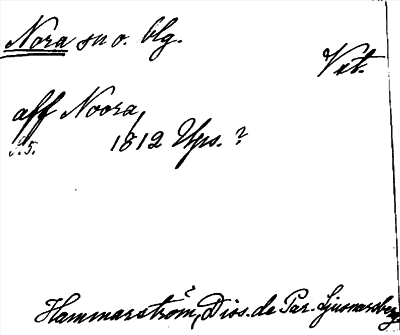 Nora sn o. blg.
Vstm.
aff Noora,
s. 5. 1812 Ups. ?
Hammarström, Diss. de Par. Ljusnarsberg